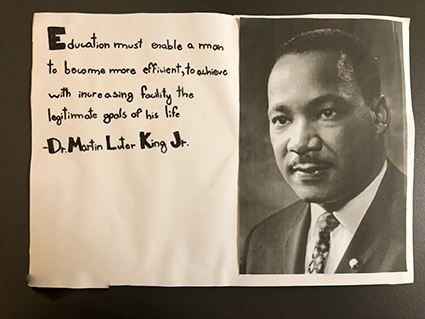 Education must enable a man
to become more efficient, to achieve
with increasing facility the
legitimate goals of his life
-Dr. Martin Luter King Jr.